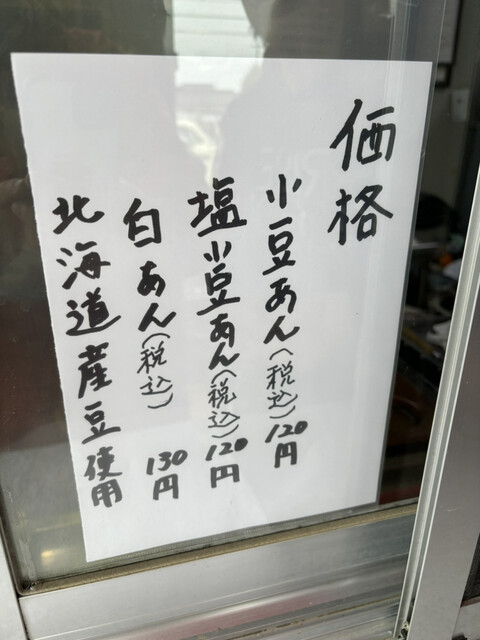 価格
小豆あん(税込)120円
塩小豆あん(税込)120円
白あん(税込)130円
北海道産豆使用